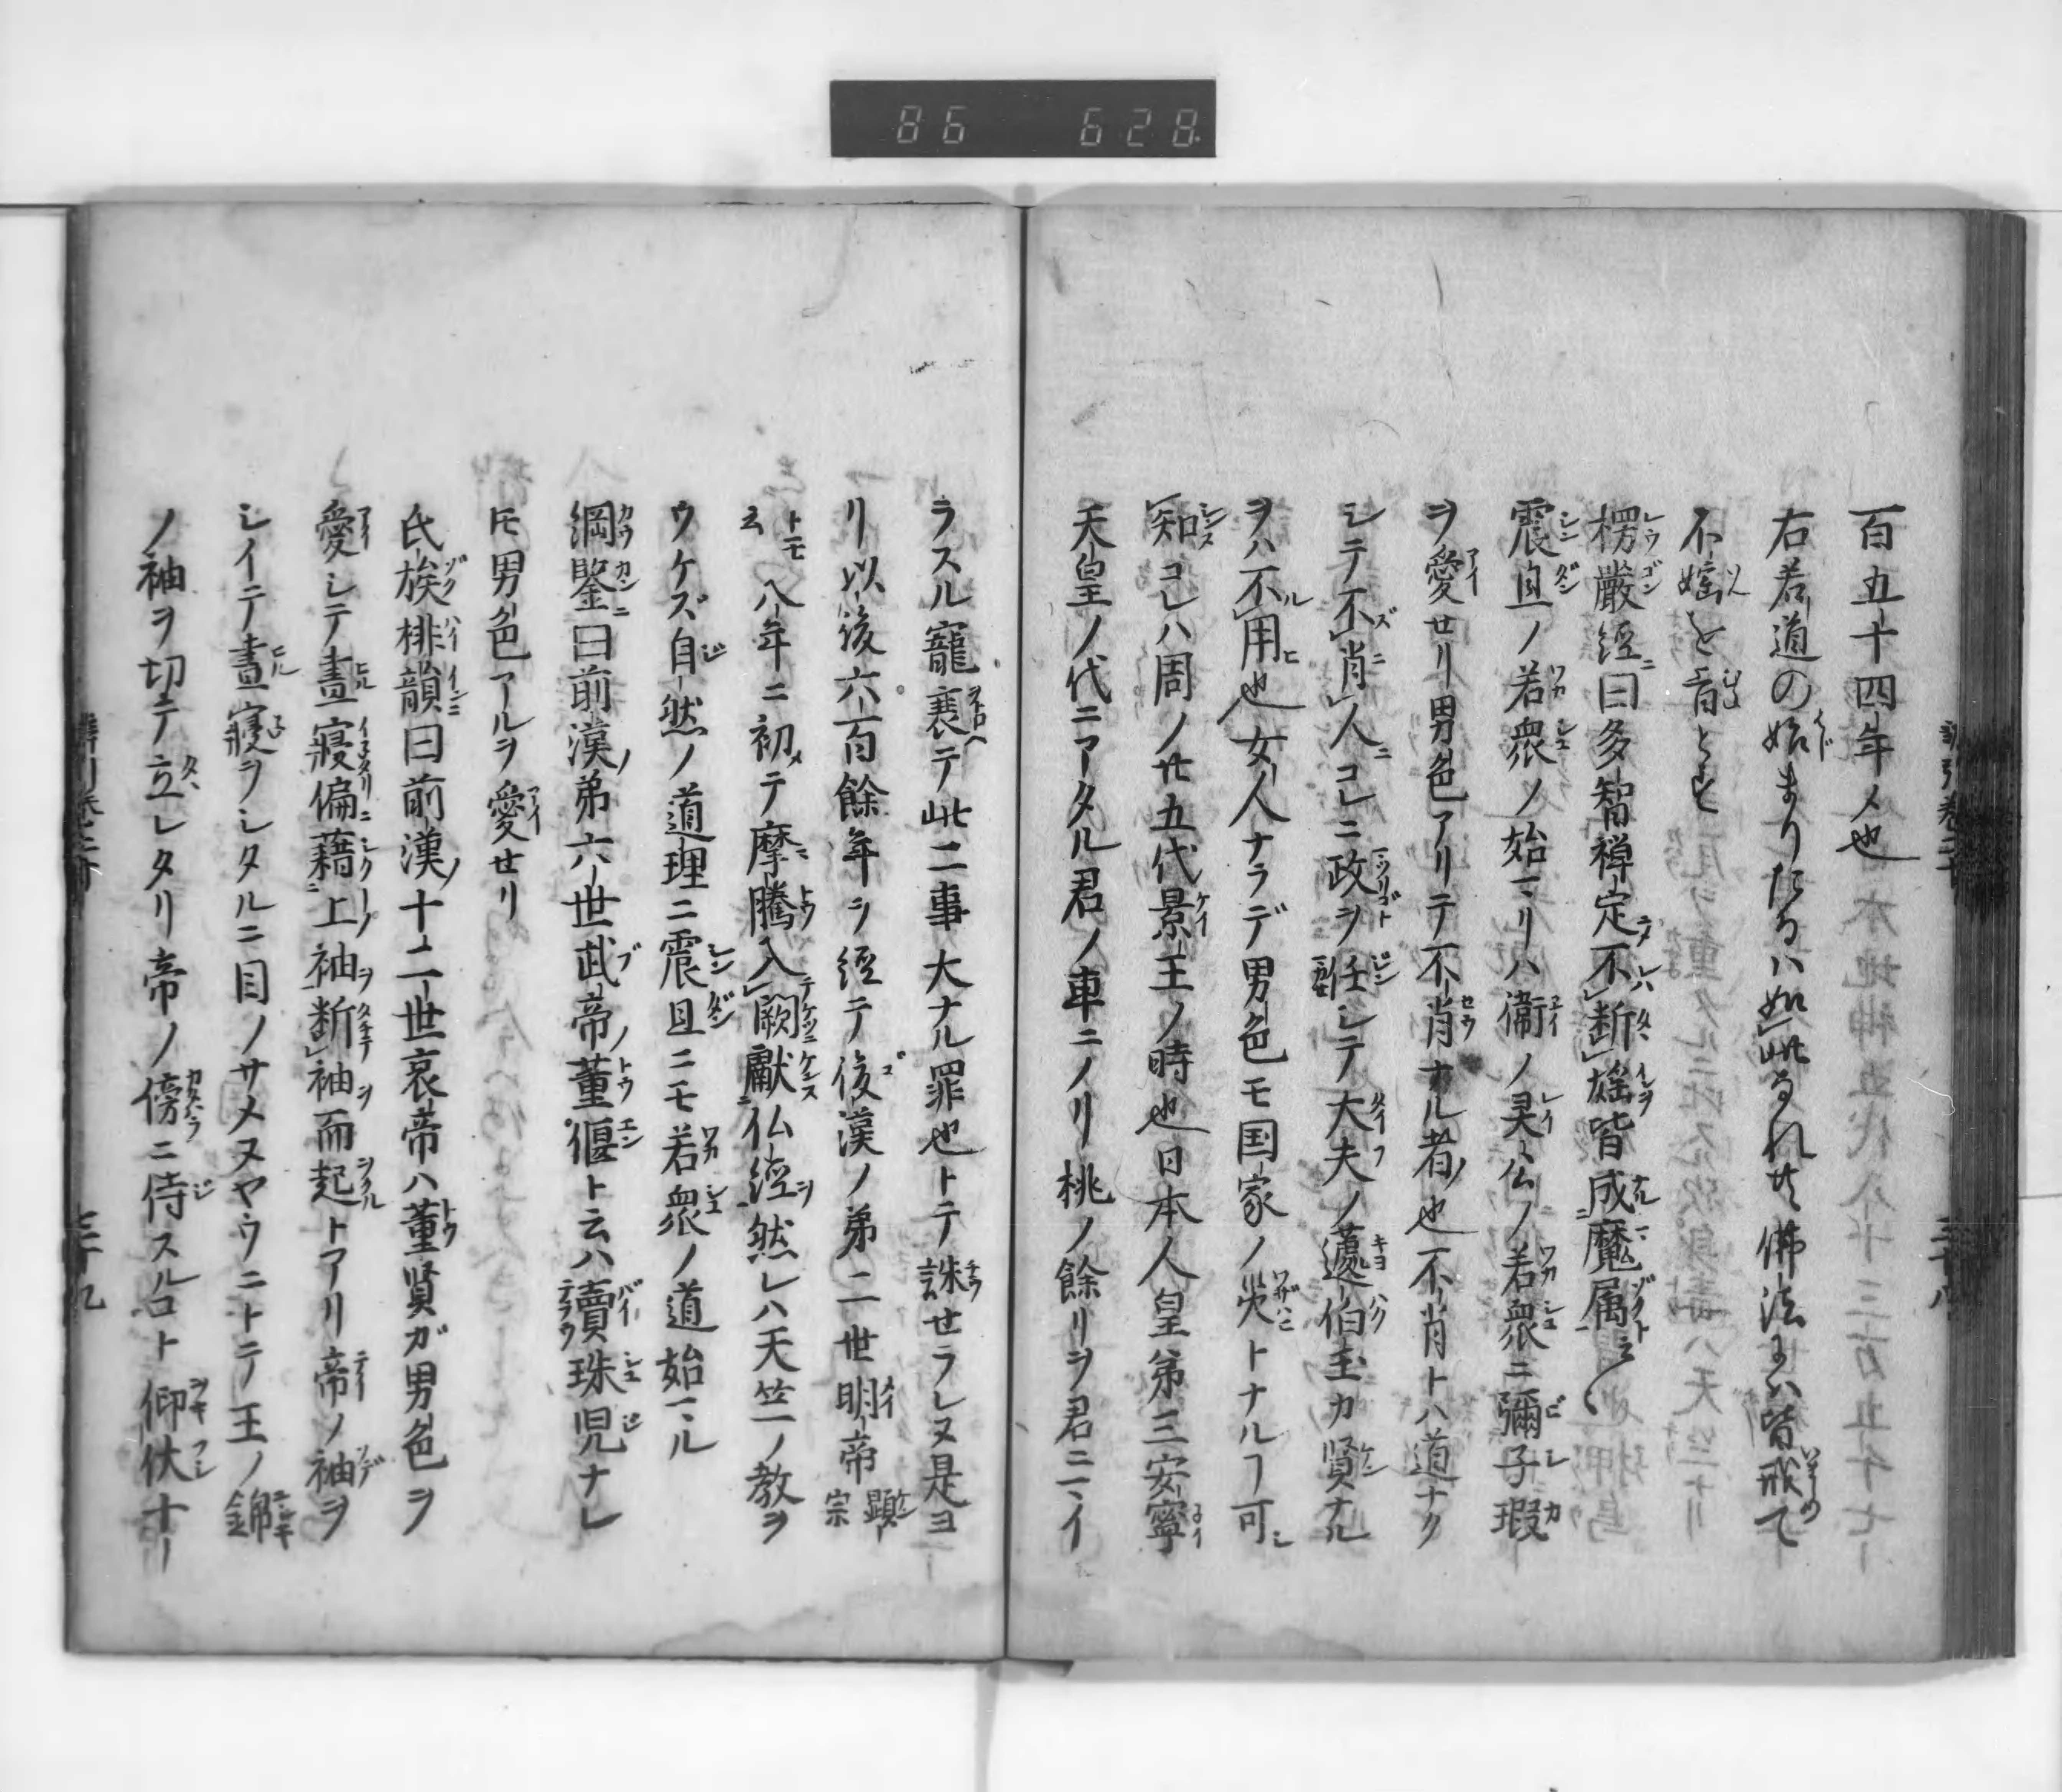 86 628
百五十四年メ也
右若道の始まりたるハ如此るれ共佛法にハ皆戒て
不婬と旨とす
楞嚴經曰多智禅定不断婬皆成魔属云〻
震旦ノ若衆ノ始マリハ衞ノ灵公ノ若衆ニ彌子瑕
ヲ愛セリ男色アリテ不肖ナル者也不肖トハ道ナク
シテ不肖人コレニ政ヲ任シテ大夫ノ蘧伯玉カ賢ナル
ヲハ不用也女人ナラデ男色モ国家ノ災トナルヿ可
知コレハ周ノ廿五代景王ノ時也日本人皇第三安寧
天皇ノ代ニアタル君ノ車ニノリ桃ノ餘リヲ君ニマイ
三十八
ラスル寵衰テ此二事大ナル罪也トテ誅セラレヌ是ヨ
リ以後六百餘年ヲ經テ後漢ノ第二世明帝顕宗
トモ云八年ニ初テ摩騰入闕獻仏經然レハ天竺ノ教ヲ
ウケズ自然ノ道理ニ震旦ニモ若衆ノ道始マル
綱鑒曰前漢第六世武帝ノ董偃ト云ハ賣珠児ナレ
ドモ男色アルヲ愛セリ
氏族排韻曰前漢ノ十二世哀帝ハ董賢ガ男色ヲ
愛シテ晝寢偏藉上袖断袖而起トアリ帝ノ袖ヲ
シイテ晝寢ヲシタルニ目ノサメヌヤウニトテ王ノ錦
ノ袖ヲ切テ立レタリ帝ノ傍ニ侍スルコト仰伏ナー
三十九